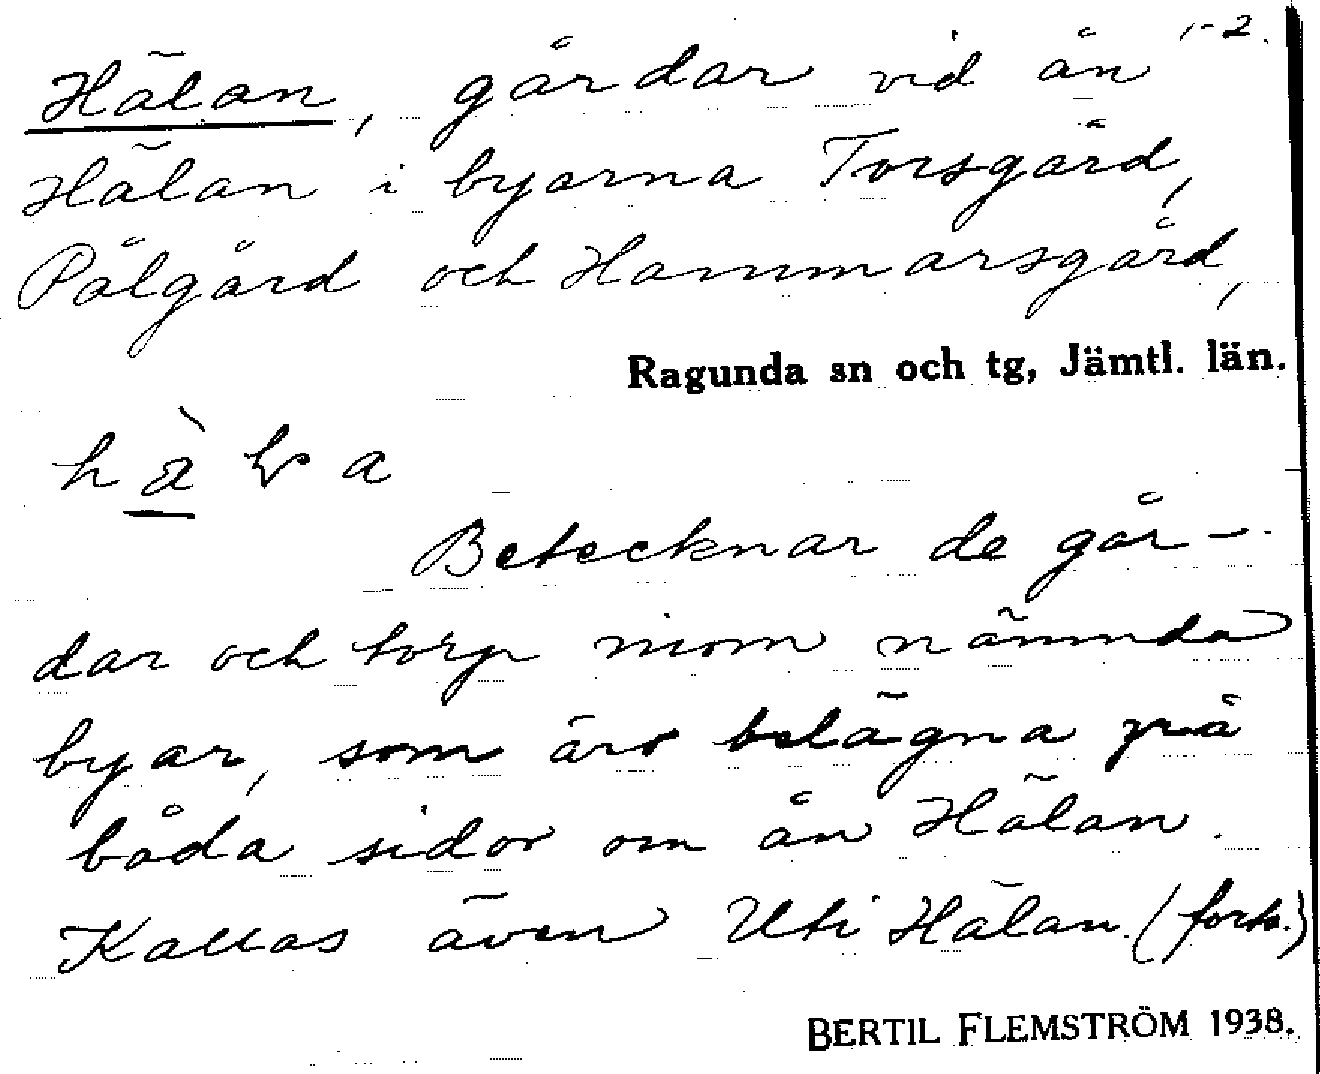 1-2.
Hälan, gårdar vid ån
Hälan i byarna Torsgård,
Pålgård och Hammarsgård,
Ragunda sn och tg, Jämtl. län.
Betecknar de går-
dar och torp inom nämnda
byar, som äro belägna på
båda sidor om ån Hälan.
Kallas även Uti Hälan. (forts.)
BERTIL FLEMSTRÖM 1938.